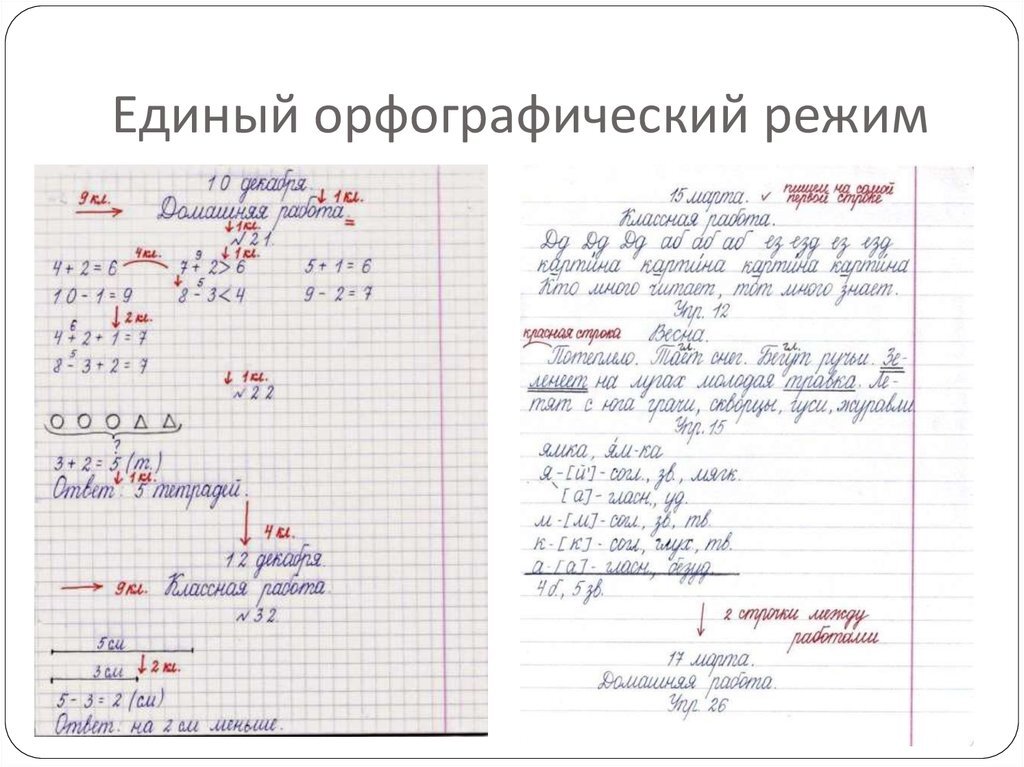 Единый орфографический режим
10 декабря.
9 кл. ↓ 1 кл.
Домашняя работа.
↓ 1 кл.
№ 21.
4 кл. 9 ↓ 1 кл.
4 + 2 = 6 7 + 2 > 6 5 + 1 = 6
5
10 - 1 = 9 8 - 3 < 4 9 - 2 = 7
↓ 2 кл.
6
4 + 2 + 1 = 7
5
8 - 3 + 2 = 7
↓ 1 кл.
№ 22
?
3 + 2 = 5 (т.)
↓ 1 кл.
Ответ: 5 тетрадей.
↓ 4 кл.
12 декабря.
→ 9 кл. Классная работа.
№ 32
5 см
3 см ↓ 2 кл.
5 - 3 = 2 (см)
Ответ: на 2 см меньше.
15 марта. ✓ пишем на самой
первой строке
Классная работа.
Дд Дд Дд аб аб аб ез езд ез езд
картина картина картина картина
Кто много читает, тот много знает.
Упр. 12
красная строка Весна.
гл. гл.
Потеплело. Тает снег. Бегут ручьи. Зе-
ленеет на лугах молодая травка. Ле-
тят с юга грачи, скворцы, гуси, журавли.
Упр. 15
ямка, ям-ка
я - [й'] - согл., зв., мягк.
[а] - гласн., уд.
м - [м] - согл., зв., тв.
к - [к] - согл., глух., тв.
а - [а] - гласн., безуд.
4 б., 5 зв.
↓ 2 строчки между
работами
17 марта.
Домашняя работа.
Упр. 26